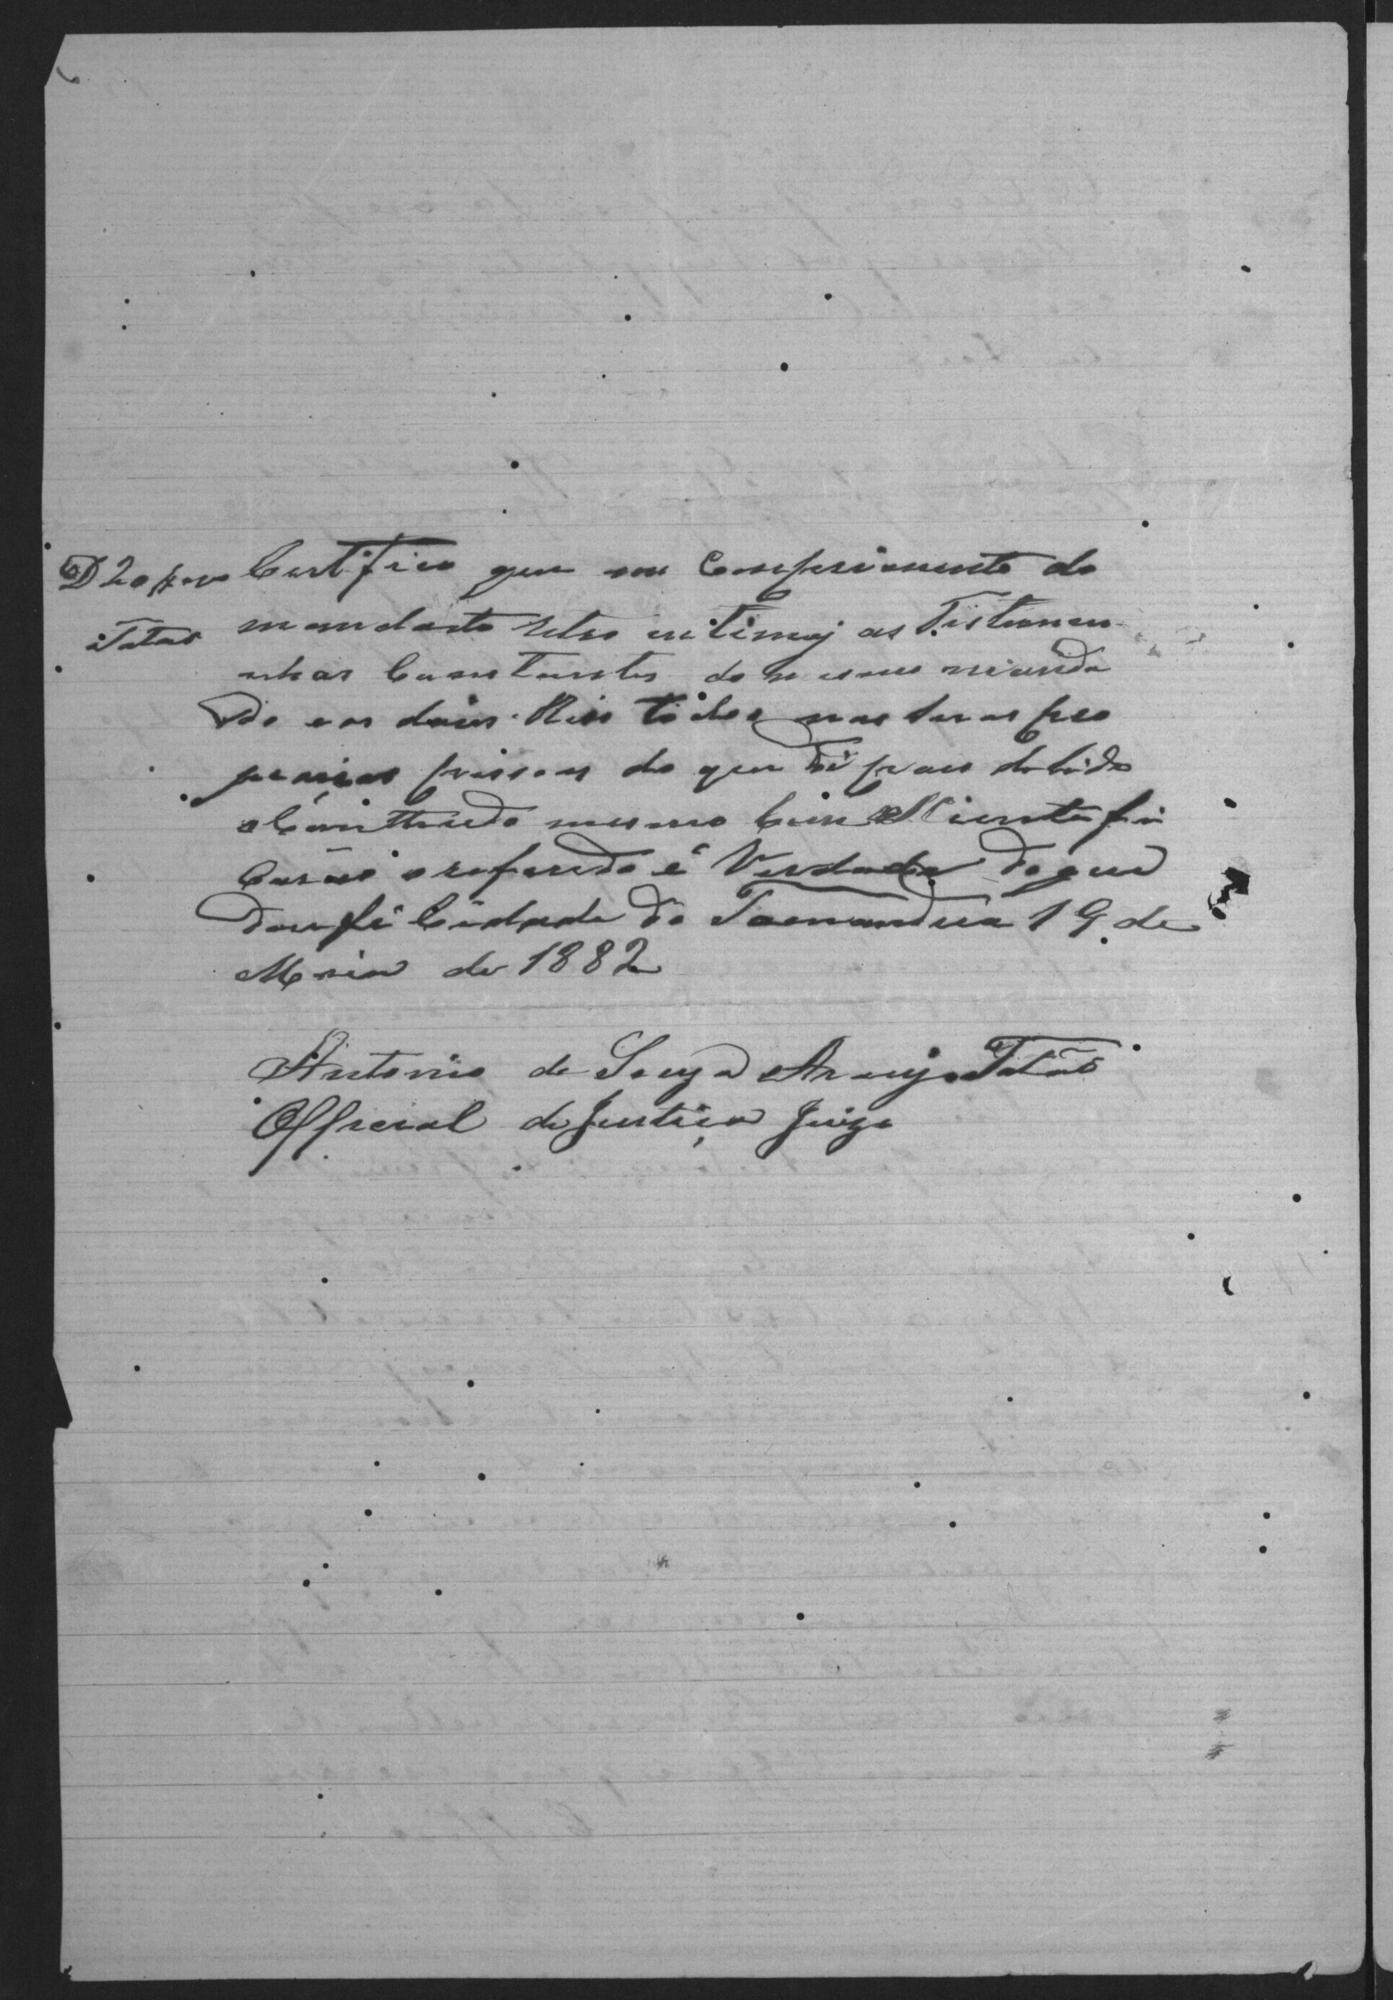 Certifico que em comprimento do
mandado retro intimei as Testemu
nhas Constantes do mesmo manda
do e os dois Reos todos nas suas pro
pias pessoas do que depois de lido
o Conthiudo mesmo bem Scientefi
carão o referido é Verdade do que
dou fé Cidade de Tamandua 19 de
Maio de 1882
Antonio de Souza Araujo Tatão
Official de Justiça Juizo